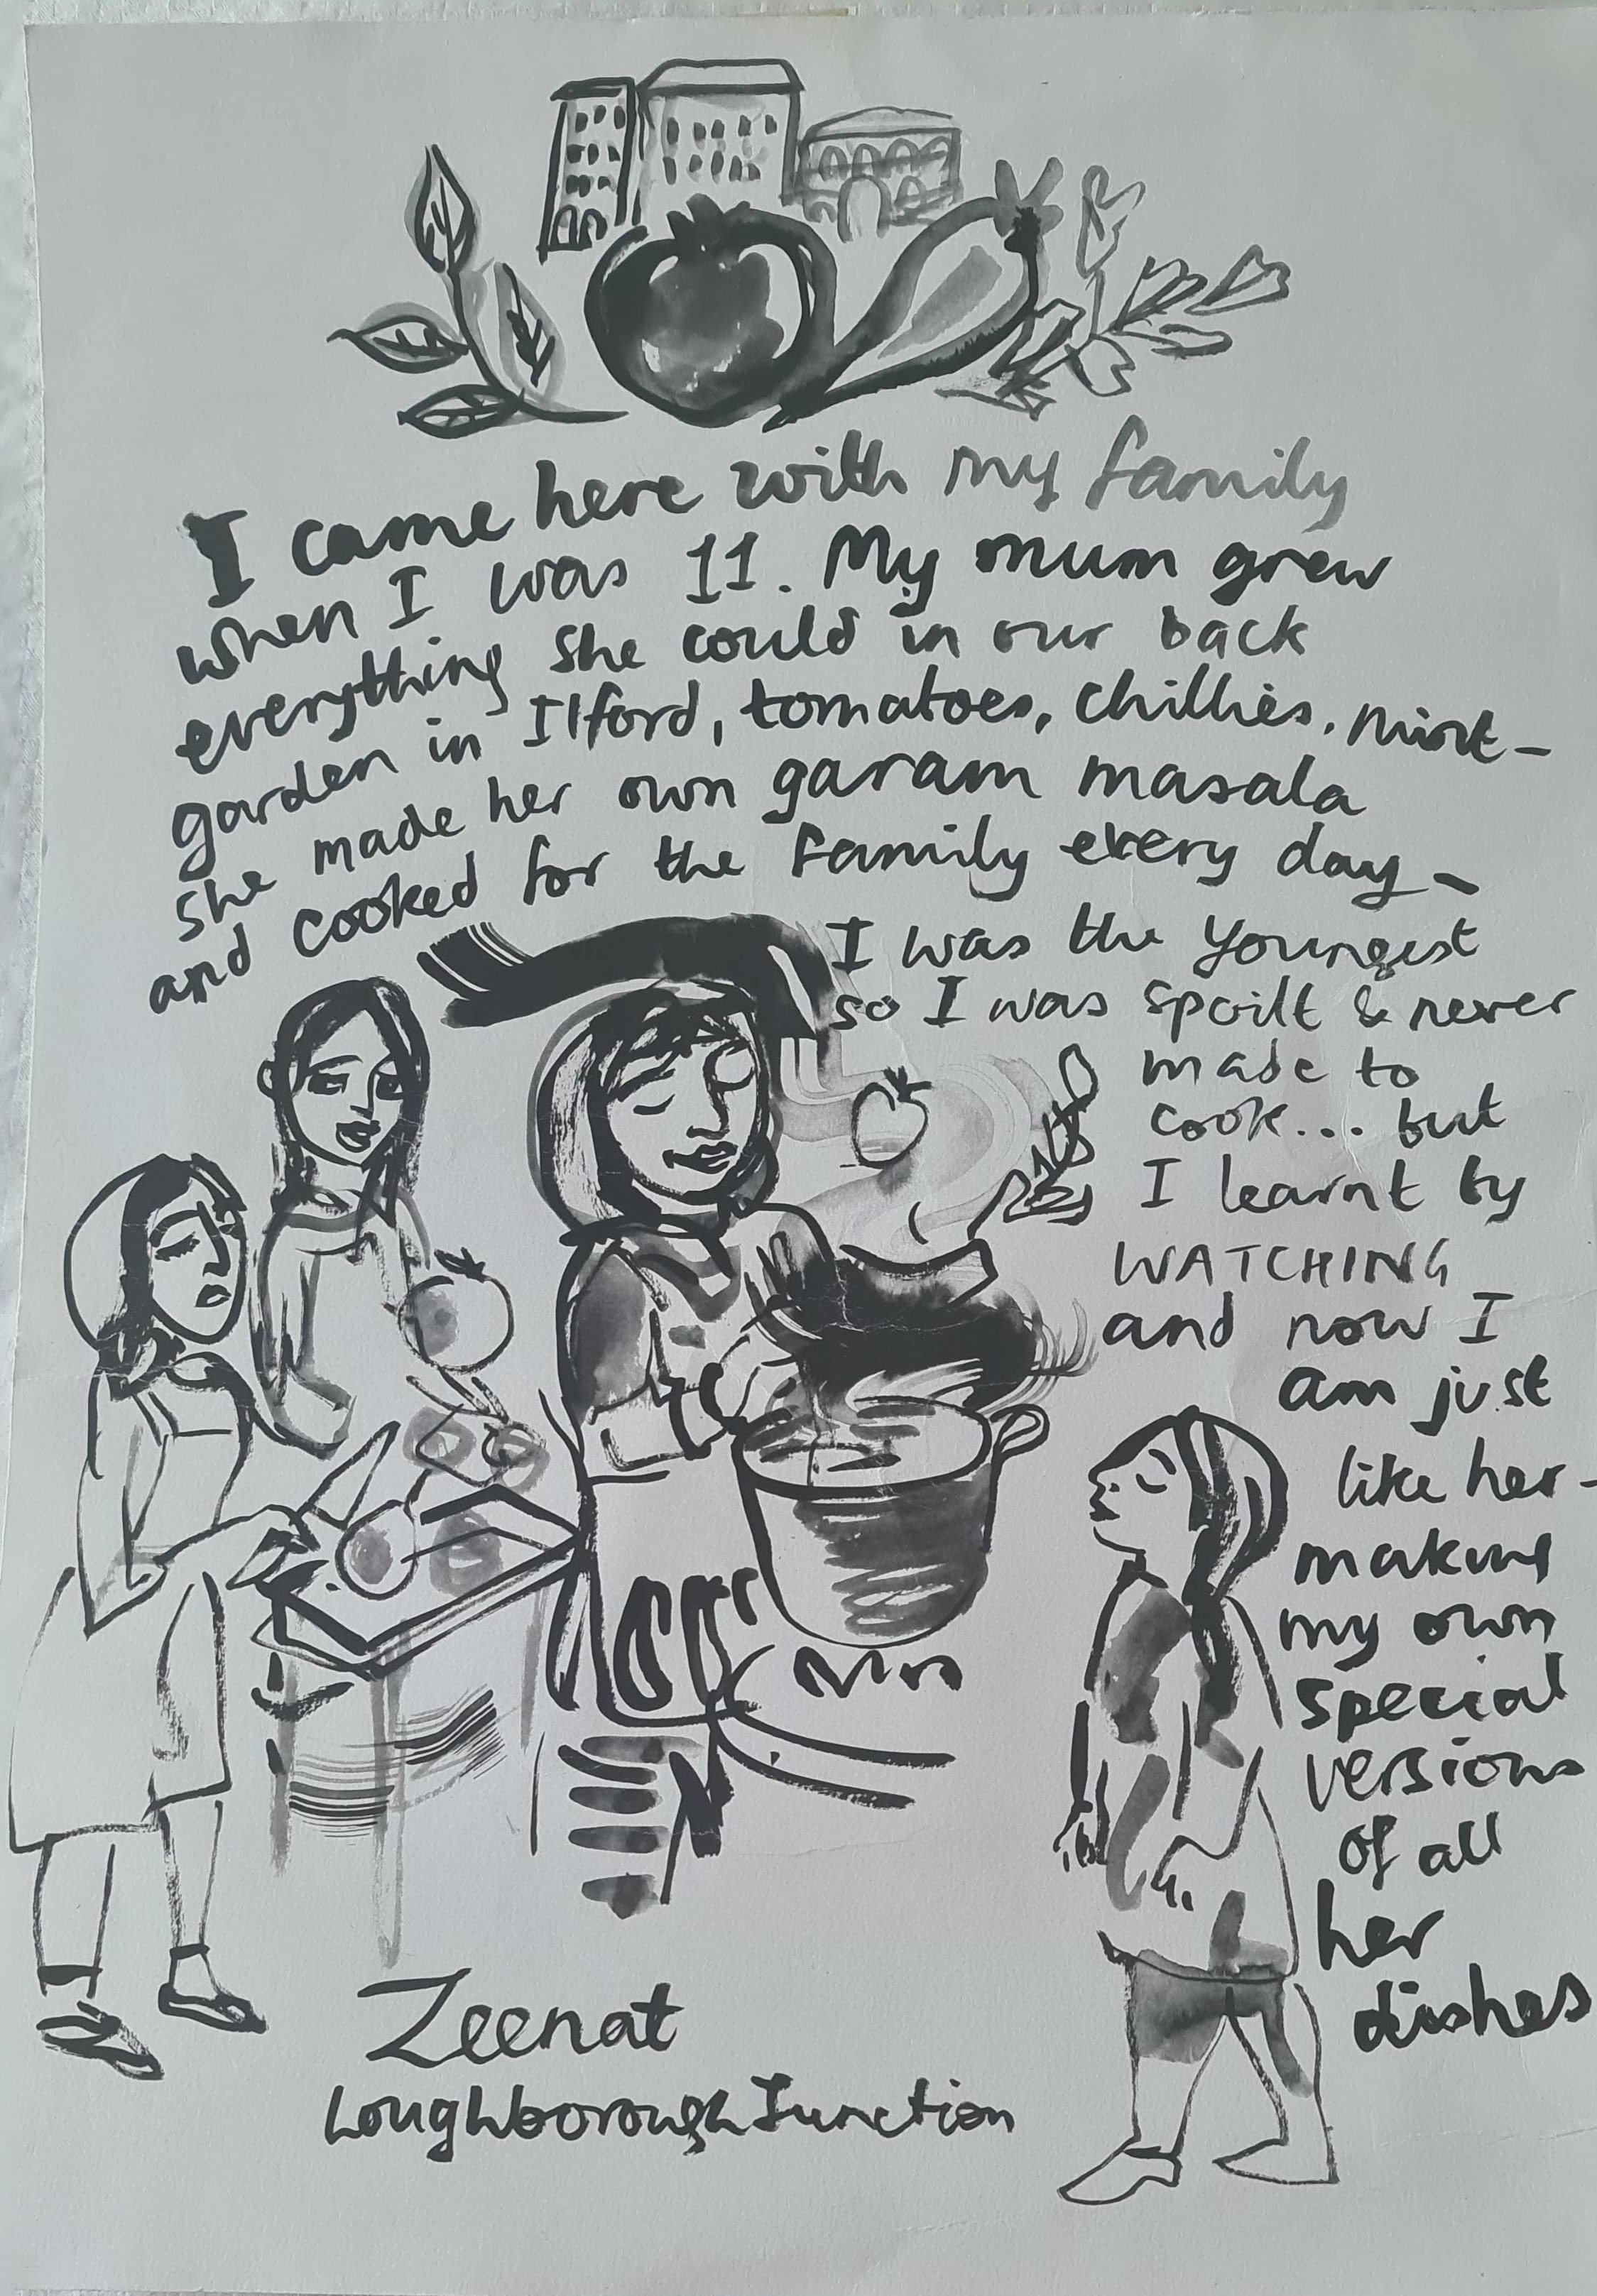 I came here with my family
when I was 11. My mum grew
everything she could in our back
garden in Ilford, tomatoes, chillies, mint -
she made her own garam masala
and cooked for the family every day -
I was the youngest
so I was spoilt & never
made to
cook... but
I learnt by
WATCHING
and now I
am just
like her -
making
my own
special
versions
of all
her
dishes
Zeenat
Loughborough Junction